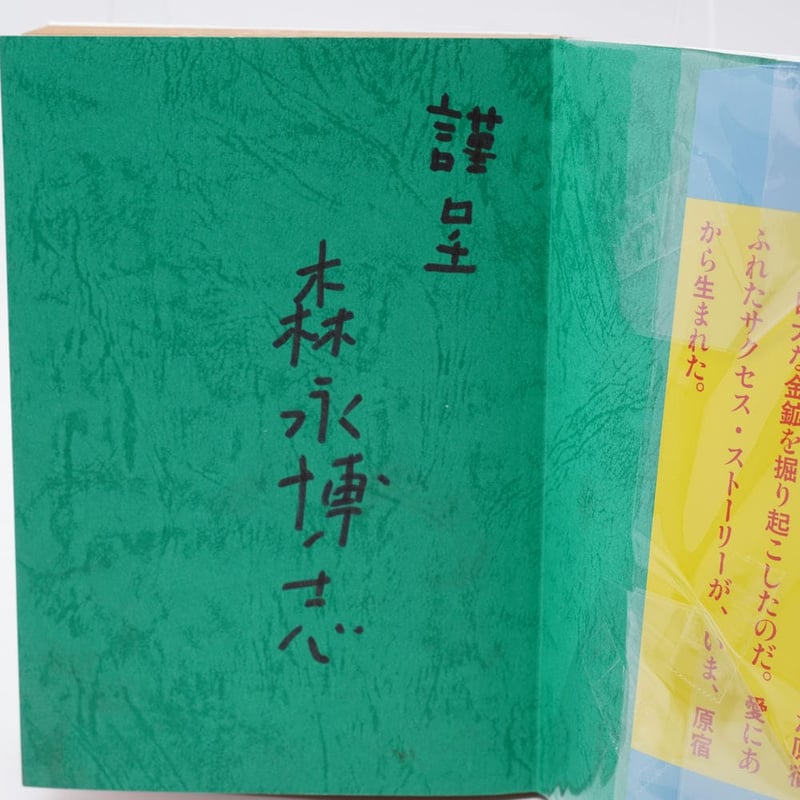 謹呈
森永博志
大な金鉱を掘り起こしたのだ。愛にあ
ふれたサクセス・ストーリーが、いま、原宿
から生まれた。